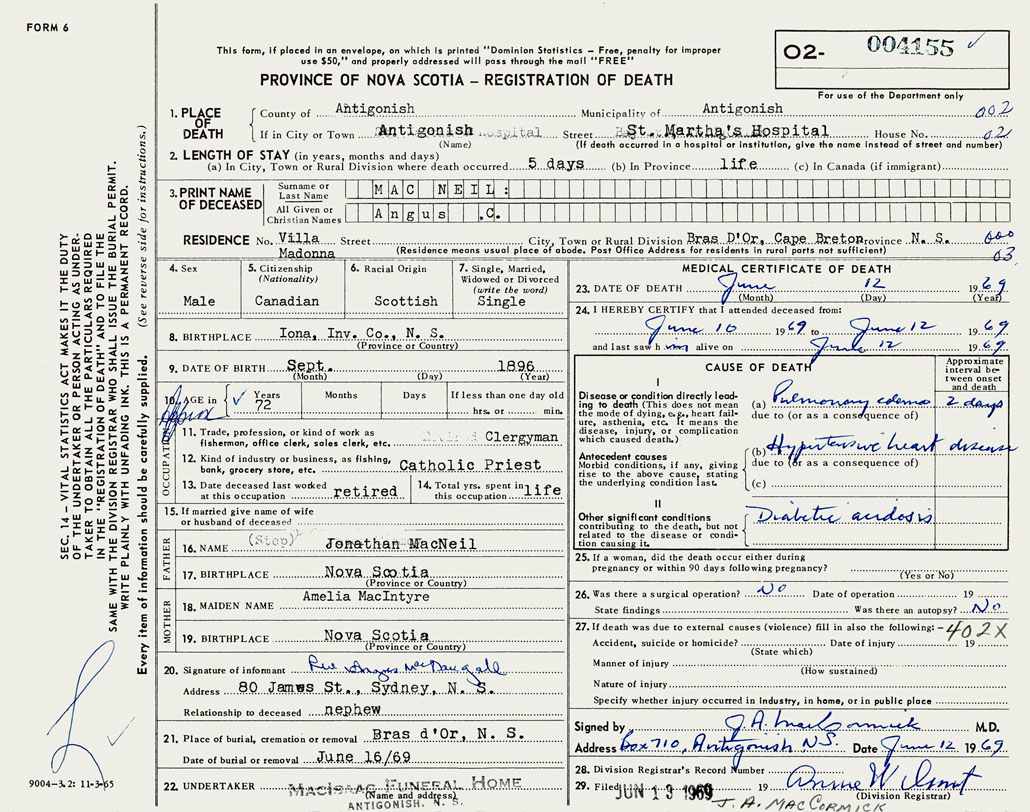 FORM 6
This form, if placed in an envelope, on which is printed "Dominion Statistics – Free, penalty for improper
use $50," and properly addressed will pass through the mail "FREE"
PROVINCE OF NOVA SCOTIA – REGISTRATION OF DEATH
O2- 004155
For use of the Department only
SEC. 14 – VITAL STATISTICS ACT MAKES IT THE DUTY
OF THE UNDERTAKER OR PERSON ACTING AS UNDER-
TAKER TO OBTAIN ALL THE PARTICULARS REQUIRED
IN THE "REGISTRATION OF DEATH" AND TO FILE THE
SAME WITH THE DIVISION REGISTRAR WHO SHALL ISSUE THE BURIAL PERMIT.
WRITE PLAINLY WITH UNFADING INK. THIS IS A PERMANENT RECORD.
Every item of information should be carefully supplied. (See reverse side for instructions.)
1. PLACE OF DEATH
County of Antigonish Municipality of Antigonish 002
If in City or Town Antigonish Street St. Martha's Hospital House No. 02
(Name) (If death occurred in a hospital or institution, give the name instead of street and number)
2. LENGTH OF STAY (in years, months and days)
(a) In City, Town or Rural Division where death occurred 5 days (b) In Province life (c) In Canada (if immigrant)
3. PRINT NAME OF DECEASED
Surname or Last Name MAC NEIL:
All Given or Christian Names Angus .C.
RESIDENCE No. Villa Madonna Street City, Town or Rural Division Bras D'Or, Cape Breton rovince N. S. 000
(Residence means usual place of abode. Post Office Address for residents in rural parts not sufficient) 03
4. Sex Male
5. Citizenship (Nationality) Canadian
6. Racial Origin Scottish
7. Single, Married, Widowed or Divorced (write the word) Single
8. BIRTHPLACE Iona, Inv. Co., N. S.
(Province or Country)
9. DATE OF BIRTH Sept. 1896
(Month) (Day) (Year)
10. AGE in Years 72 Months Days If less than one day old hrs. or min.
Approx
OCCUPATION
11. Trade, profession, or kind of work as fisherman, office clerk, sales clerk, etc. Clergyman
12. Kind of industry or business, as fishing, bank, grocery store, etc. Catholic Priest
13. Date deceased last worked at this occupation retired
14. Total yrs. spent in this occupation life
15. If married give name of wife or husband of deceased
FATHER
(Step)
16. NAME Jonathan MacNeil
17. BIRTHPLACE Nova Scotia
(Province or Country)
MOTHER
18. MAIDEN NAME Amelia MacIntyre
19. BIRTHPLACE Nova Scotia
(Province or Country)
20. Signature of informant Rev Angus McDougall
Address 80 James St., Sydney, N. S.
Relationship to deceased nephew
21. Place of burial, cremation or removal Bras d'Or, N. S.
Date of burial or removal June 16/69
22. UNDERTAKER MACISAAC FUNERAL HOME
(Name and address)
ANTIGONISH, N. S.
9004-3.2: 11-3-65
MEDICAL CERTIFICATE OF DEATH
23. DATE OF DEATH June 12 1969
(Month) (Day) (Year)
24. I HEREBY CERTIFY that I attended deceased from:
June 10 1969 to June 12 1969
and last saw him alive on June 12 1969
CAUSE OF DEATH
Approximate interval between onset and death
I
Disease or condition directly leading to death (This does not mean the mode of dying, e.g., heart failure, asthenia, etc. It means the disease, injury, or complication which caused death.)
(a) Pulmonary edema 2 days
due to (or as a consequence of)
Antecedent causes
Morbid conditions, if any, giving rise to the above cause, stating the underlying condition last.
(b) Hypertensive heart disease
due to (or as a consequence of)
(c)
II
Other significant conditions
contributing to the death, but not related to the disease or condition causing it.
Diabetic acidosis
25. If a woman, did the death occur either during pregnancy or within 90 days following pregnancy?
(Yes or No)
26. Was there a surgical operation? No Date of operation 19
State findings Was there an autopsy? No
27. If death was due to external causes (violence) fill in also the following: – 402X
Accident, suicide or homicide? Date of injury 19
(State which)
Manner of injury
(How sustained)
Nature of injury
Specify whether injury occurred in industry, in home, or in public place
Signed by J.A. MacCormick M.D.
Address Box 710, Antigonish N.S. Date June 12 1969
28. Division Registrar's Record Number
29. Filed JUN 13 1969 19
(Division Registrar)
J. A. MACCORMICK